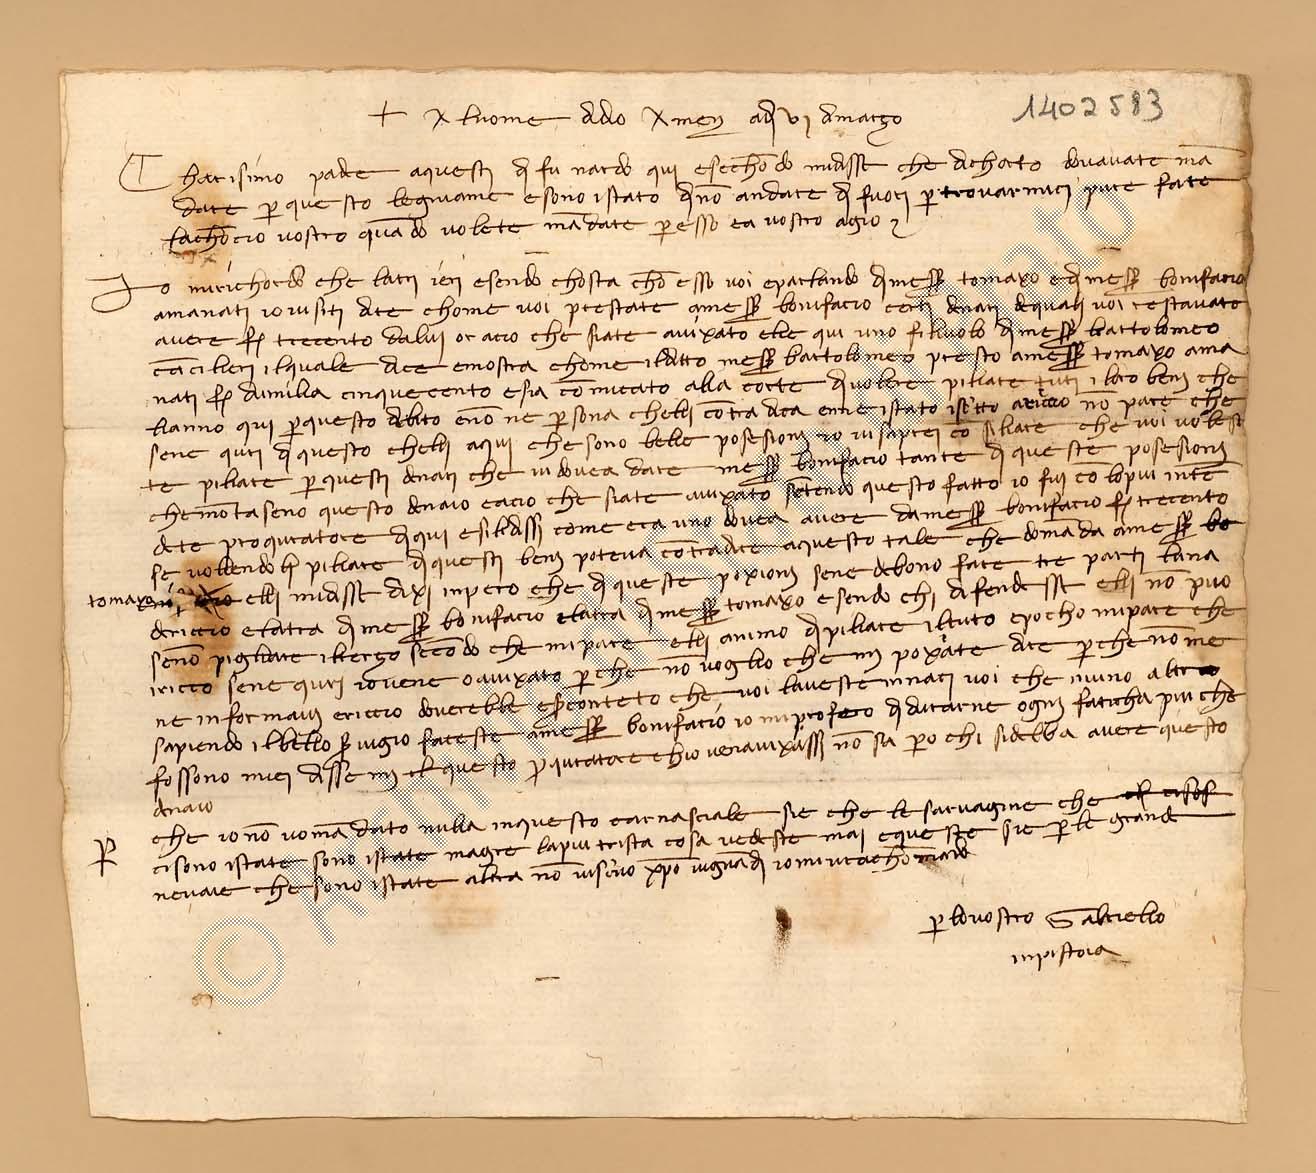 1402583
+ Al nome di dio amen adi vi di março
Charisimo padre a questi di fu nardo qui e sechõdo mi disse che di certo dovavate mã
date per questo legniame e sono istato di nõ andare di fuori per trovarmici pure fate
l achõcio vostro quãdo volete mãdate per esso e a vostro agio
Io mi richordo che l atri ieri esendo chosta chõ esso voi e parlando di messer tomaxo e di messer bonifacio
amanati io vi siti dire chome voi prestate a messer bonifacio certi denari de quali voi restavate
avere fl trecento da lui or acio che siate avixato elle qui uno filiuolo di messer bartolomeo
cãcilieri il quale dice e mostra chome il ditto messer bartolomeo presto a messer tomaxo ama
nati fl dumilia cinquecento e si a comicato alla corte di volere piliare tuti i loro beni che
lanno qui per questo debito e nõ ne persona che lli cõtra dica enne istato iscritto a riccio nõ pare che
sene quri di questo che lli a qui che sono belle posesioni io vi saprei cõsiliare che voi voleste
te piliare per questi denari che vi dovea dare messer bonifacio tante di queste posesioni
che mõtaseno questo denaio e acio che siate avixato sẽtendo questo fatto io fui co lo piu intẽ
dete proquratore di qui e si li dissi come era uno dovea avere da messer bonifacio fl trecento
se vollendo li piliare di questi beni poteva cõtradire a questo tale che domãda a messer
tomaxo elli mi disse di xi in pero che di queste poxioni sene debono fare tre parti l una
di riccio e l atra di messer bonifacio e l atra di messer tomaxo e sendo chi difendesse elli nõ puo
senõ pigliare il terço secõdo che mi pare elli animo di piliare il tuto e pocho mi pare che
iriccio sene quri io vene o avixato perche nõ voglio che mi poxate dire perche nõ me
ne informaivi e riccio doverebbe esere contẽto che voi l aveste innaçi voi che niuno altro
sapiendo il bello servigio faceste a messer bonifacio io mi profero di durarne ogni faticha piu che
fossono miei disse mi questo proquratore ch io ve n avixassi nõ sia pero chi si debba avere questo
denaio
Per che io nõ vo mãdato nulla in questo carnasciale sie che le sarvagine che
ci sono istate sono istate magre la piu trista cosa vedeste mai e queste sie per le grande
nevaie che sono istate altra nõ vi scrivo xpo vi guardi io mi vi rachõmãdo
per lo vostro Gabriello
in pistoia
© Archivio di Stato di Prato